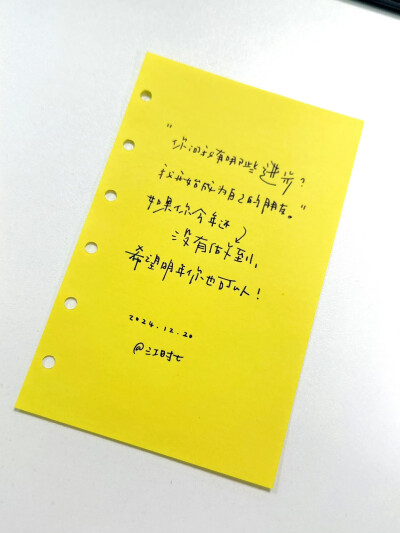 “你问我有哪些进步？
我开始成为自己的朋友。”
如果你今年还
没有做到，
希望明年你也可以！
2024.12.20
@江时七